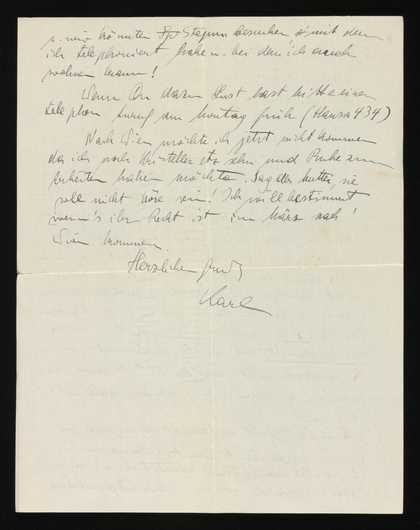 u. wir könnten Stegun besuchen mit dem
ich telephoniert habe u. bei dem ich auch
wohnen kann!
Wenn Du dazu Lust hast bitte einen
telephon Anruf am Montag früh (Hansa 434)
Nach Wien möchte ich jetzt nicht kommen
da ich noch etc. sehn und Ruhe zum
Arbeiten haben möchte. Sag der Mutter, sie
soll nicht böse sein! Ich will bestimmt
wenn's ihr Recht ist im März nach
Wien kommen.
Herzlichen Gruß
Karl